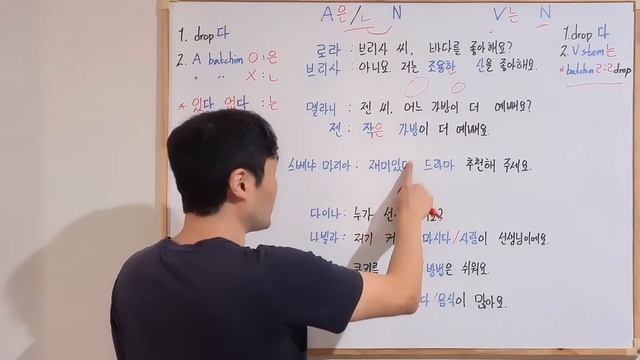 A은/ㄴ N
V는 N
1. drop 다
2. A batchim O : 은
" " X : ㄴ
* 있다 없다 : 는
로라 : 브리사 씨, 바다를 좋아해요?
브리사 : 아니요. 저는 조용한 산을 좋아해요.
멜라니 : 젠 씨, 어느 가방이 더 예뻐요?
젠 : 작은 가방이 더 예뻐요.
스베냐 마리아 : 재미있다 드라마 추천해 주세요.
다이나 : 누가
나빌라 : 저기 마시다/사람이 선생님이에요.
쿠키를 방법은 쉬워요.
다/음식이 많아요.
1. drop 다
2. V stem는
* batchim ㄹ:ㄹ drop